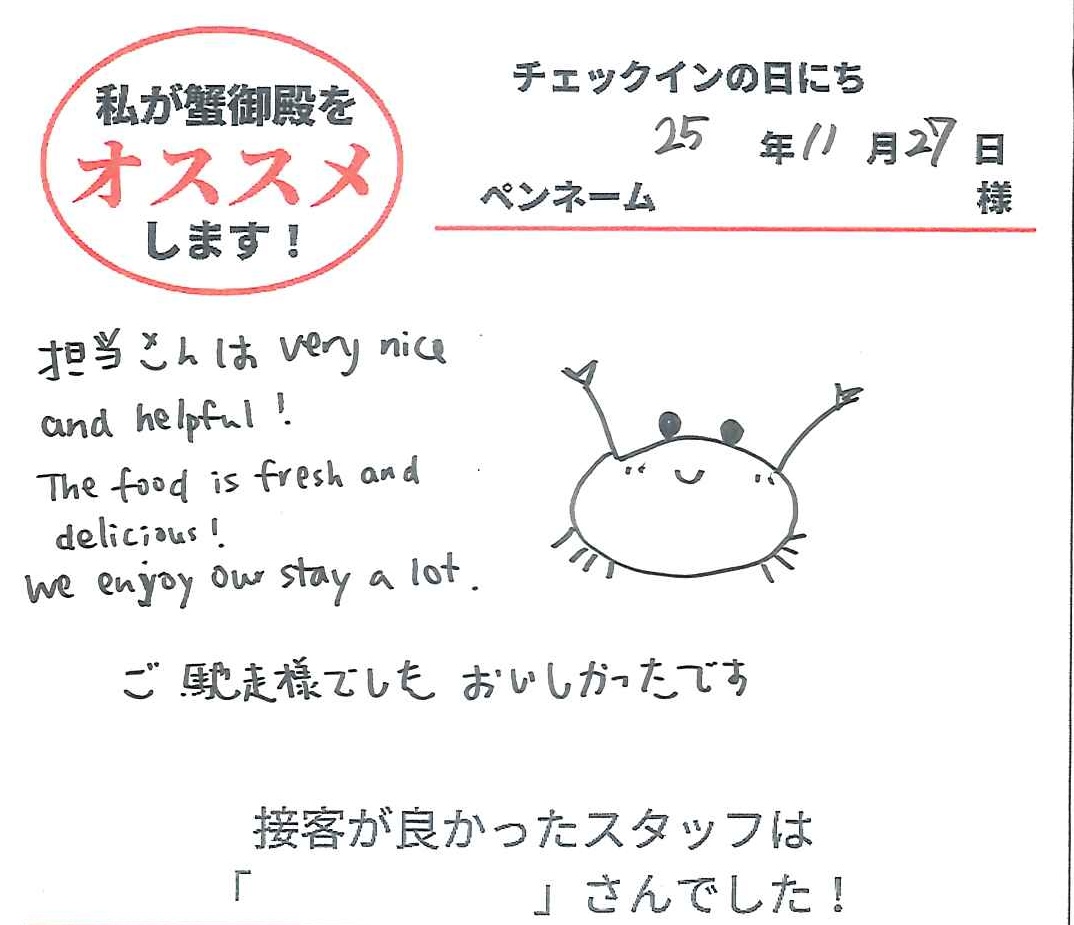 私が蟹御殿を
オススメ
します！
チェックインの日にち
25 年 11 月 27 日
ペンネーム 様
担当さんは very nice
and helpful!
The food is fresh and
delicious!
We enjoy our stay a lot.
ご馳走様でしも おいしかったです
接客が良かったスタッフは
「 」さんでした！